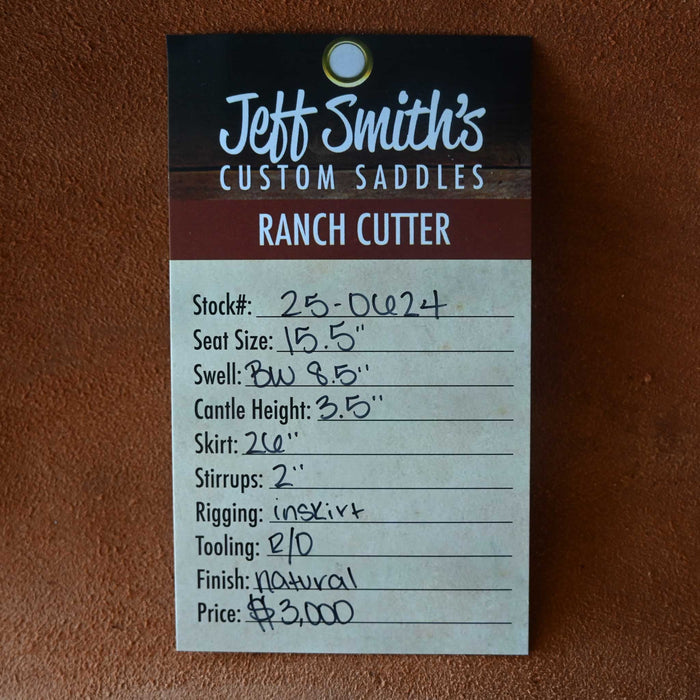 Jeff Smith's
CUSTOM SADDLES
RANCH CUTTER
Stock#: 25-0624
Seat Size: 15.5"
Swell: BW 8.5"
Cantle Height: 3.5"
Skirt: 26"
Stirrups: 2"
Rigging: inskirt
Tooling: R/O
Finish: natural
Price: $3,000